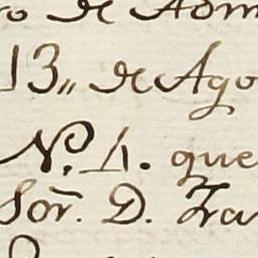 ro de Adm
13,, de Ago
N. 4. que
Sor. D. Fra